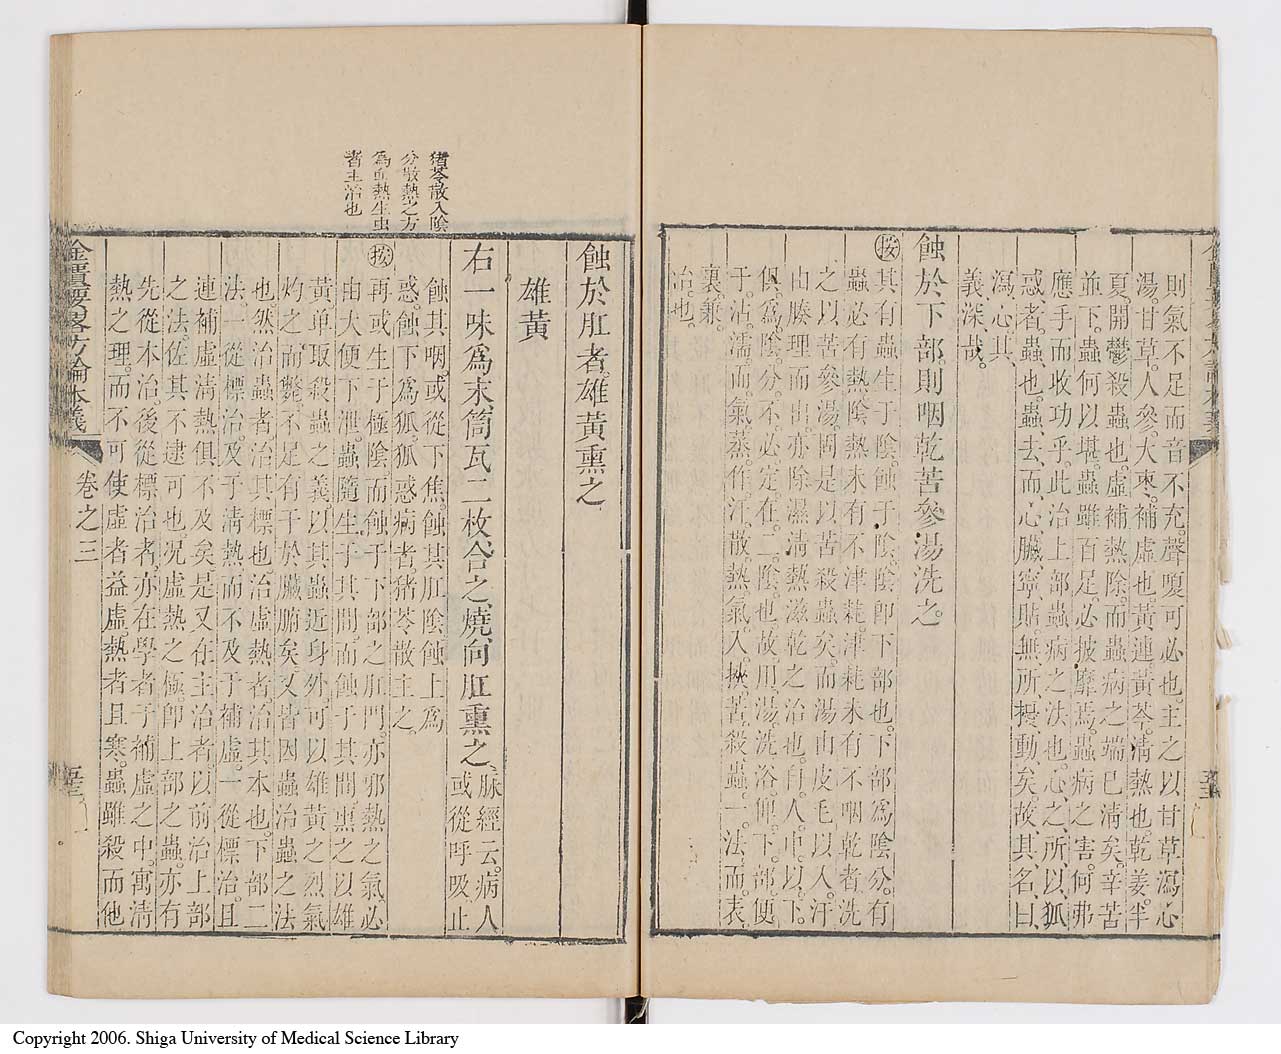 則氣不足而音不充。聲嗄可必也。主之以甘草瀉心
湯。甘草。人參。大棗。補虛也。黃連。黃芩。淸熱也。乾姜。半
夏。開鬱殺蟲也。虛補熱除。而蟲病之端已淸矣。辛苦
並下。蟲何以堪。蟲雖百足。必披靡焉。蟲病之害。何弗
應手而收功乎。此治上部蟲病之法也。心之所以狐
惑者。蟲也。蟲去而心臟寧貼。無所擾動矣。故其名曰
瀉心。其
義深哉。
蝕於下部。則咽乾。苦參湯洗之。
按其有蟲生于陰。蝕于陰。陰卽下部也。下部爲陰分。有
蟲必有熱。陰熱未有不津耗。津耗未有不咽乾者。洗
之以苦參湯。固是以苦殺蟲矣。而湯由皮毛以入。汗
由腠理而出。亦除濕淸熱滋乾之治也。且人巾以下。
俱爲陰分。不必定在二陰也。故用湯洗浴。仰下部便
于沾濡。而氣蒸作汗。散熱氣入。挾苦殺蟲一法。而表
裏兼
治也。
蝕於肛者。雄黃熏之
雄黃
右一味爲末。筒瓦二枚合之。燒向肛熏之。脉經云。病人
或從呼吸止
蝕其咽。或從下焦。蝕其肛陰。蝕上爲
惑。蝕下爲狐。狐惑病者。猪苓散主之。
按再或生于極陰。而蝕于下部之肛門。亦邪熱之氣。必
由大便下泄。蟲隨生于其間。而蝕于其間。熏之以雄
黃。單取殺蟲之義。以其蟲近身外。可以雄黃之烈氣
灼之而斃。不足有干於臟腑矣。又皆因蟲治蟲之法
也。然治蟲者。治其標也。治虛熱者。治其本也。下部二
法。一從標治。及于淸熱而不及于補虛。一從標治。且
連補虛淸熱俱不及矣。是又在主治者以前治上部
之法。佐其不逮可也。况虛熱之極。卽上部之蟲。亦有
先從本治。後從標治者。亦在學者于補虛之中。寓淸
熱之理。而不可使虛者益虛。熱者且寒。蟲雖殺而他
猪苓散入陰
分散熱之方
爲血熱生虫
者主治也
金匱要略方論本義
卷之三
Copyright 2006. Shiga University of Medical Science Library